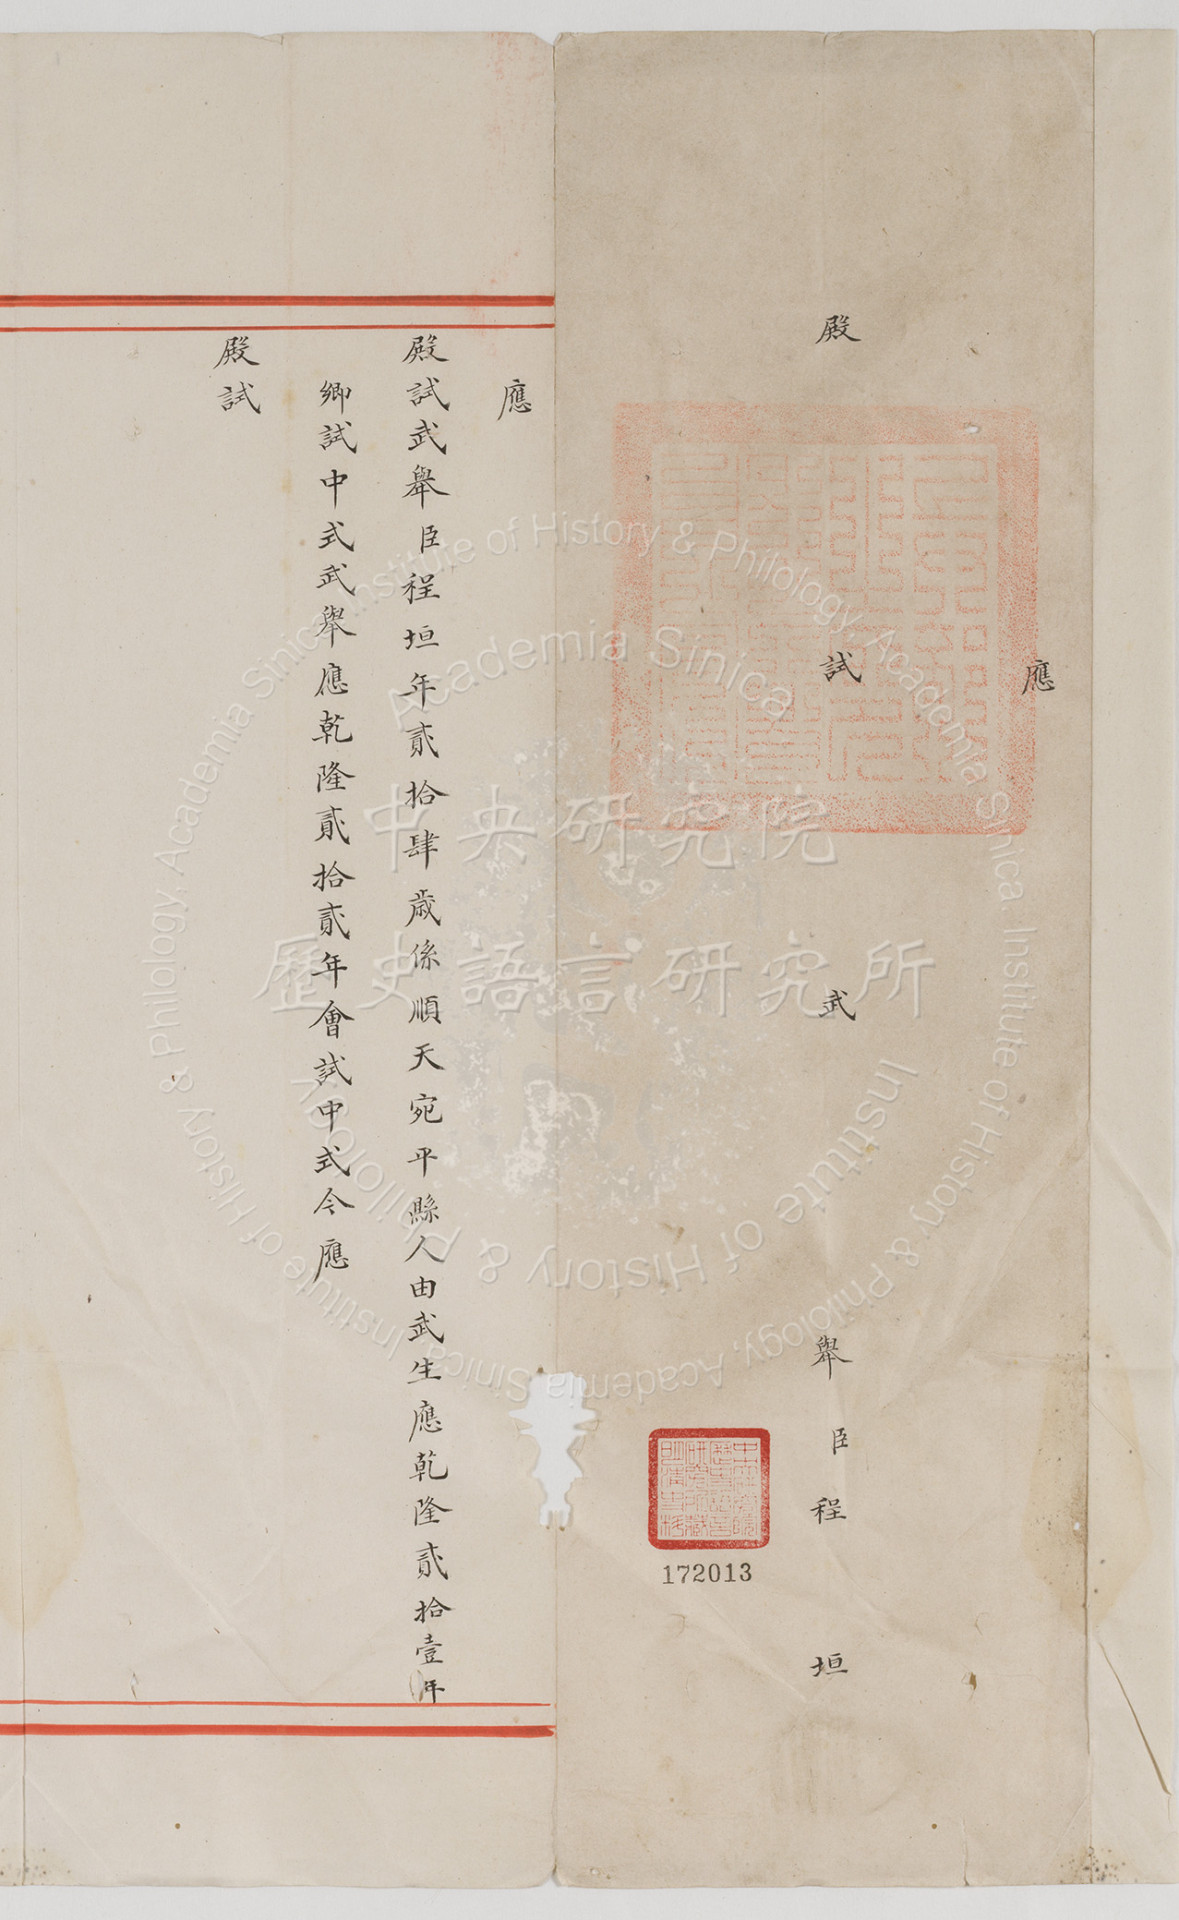 應
殿試武舉臣程垣
172013
應
殿試武舉臣程垣年貳拾肆歲係順天宛平縣人由武生應乾隆貳拾壹年
鄉試中式武舉應乾隆貳拾貳年會試中式今應
殿試
中央研究院
歷史語言研究所
Academia Sinica
Institute of History & Philology
Institute of History & Philology, Academia Sinica